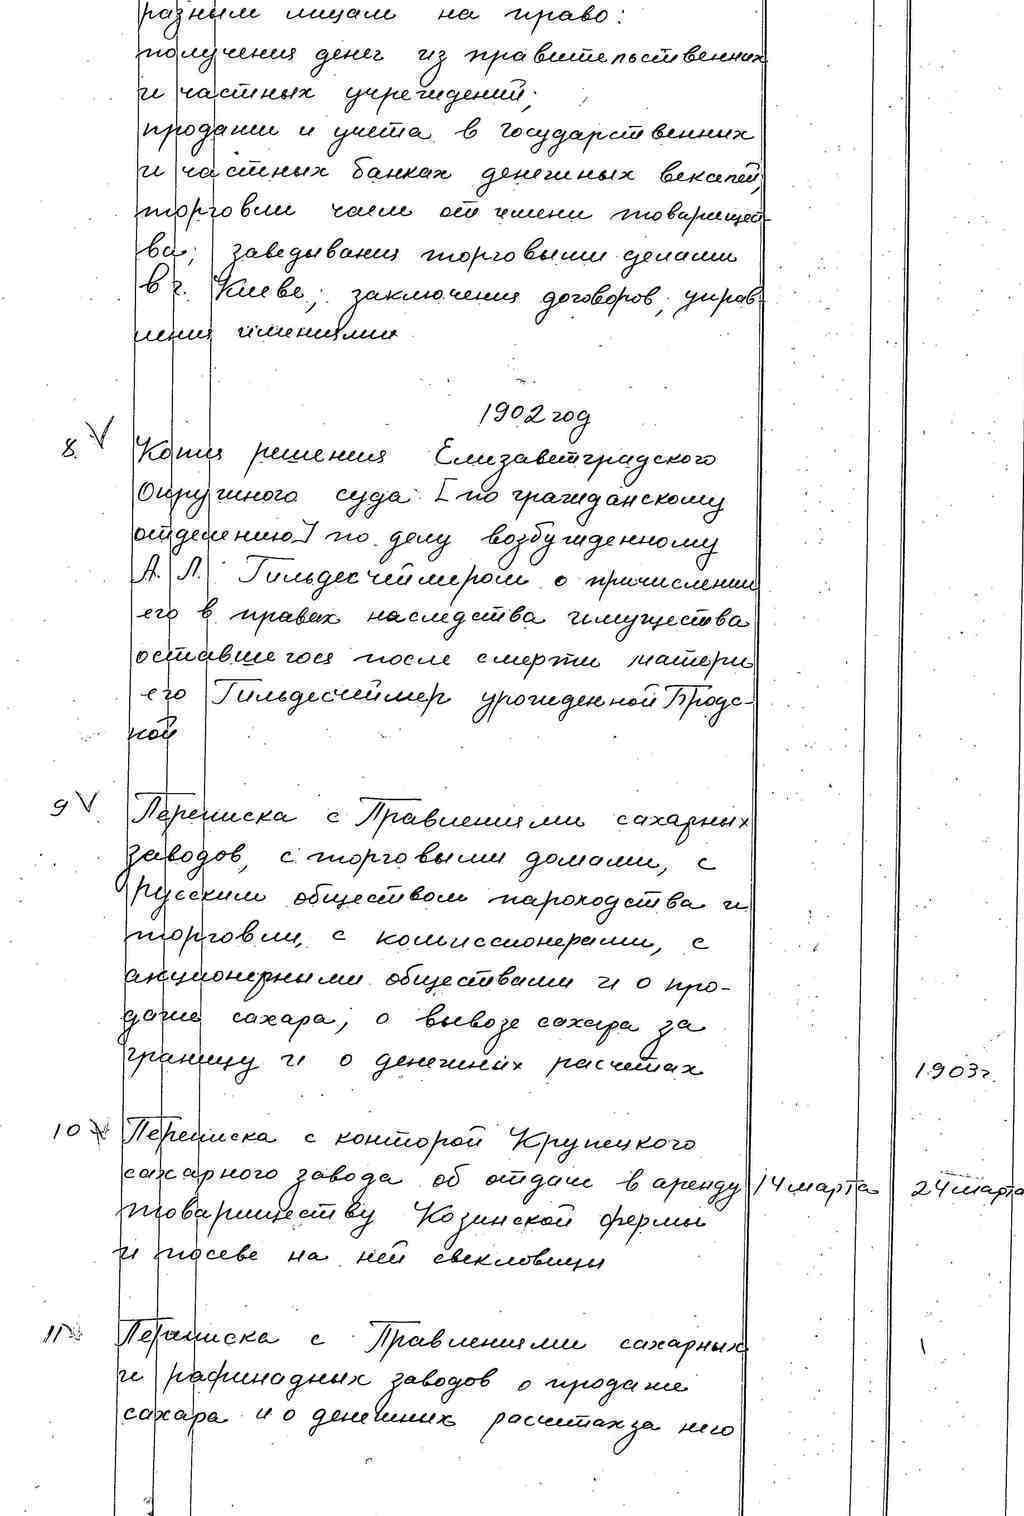 разным лицам на право:
получения денег из правительственных
и частных учреждений;
продажи и учета в государственных
и частных банках денежных векселей;
торговли чаем от имени товарищест-
ва; заведывания торговыми делами
в г. Киеве; заключения договоров; управ-
ления имениями
1902 год
8. V Копия решения Елизаветградского
Окружного суда [по гражданскому
отделению] по делу возбужденному
А. Л. Гильдесгеймером о причислении
его в правах наследства имущества
оставшегося после смерти матери
его Гильдесгеймер урожденной Бродс-
кой
9 V Переписка с Правлениями сахарных
заводов, с торговыми домами, с
Русским обществом пароходства и
торговли, с комиссионерами, с
акционерными обществами и о про-
даже сахара; о вывозе сахара за
границу и о денежных расчетах
1903 г.
10 Переписка с конторой Крупецкого
сахарного завода об отдаче в аренду 14 марта 24 марта
товариществу Козинской фермы
и посеве на ней свекловицы
11 Переписка с Правлениями сахарных
и рафинадных заводов о продаже
сахара и о денежных расчетах за него